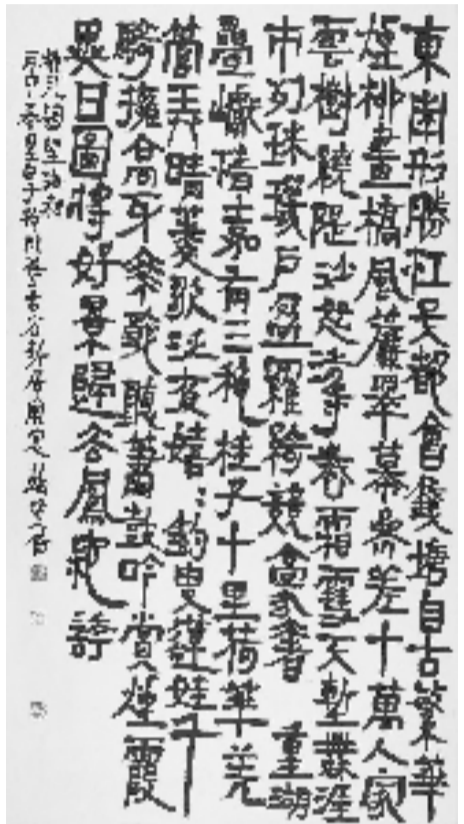 東南形勝江吳都會錢塘自古繁華
煙柳畫橋風簾翠幕參差十萬人家
雲樹繞隄沙怒濤卷霜雪天塹無涯
市列珠璣戶盈羅綺競豪奢 重湖
疊巘清嘉有三秋桂子十里荷華羌
管弄晴菱歌泛夜嬉:釣叟蓮娃千
騎擁高牙乘醉聽簫鼓吟賞煙霞
異日圖將好景歸去鳳池誇